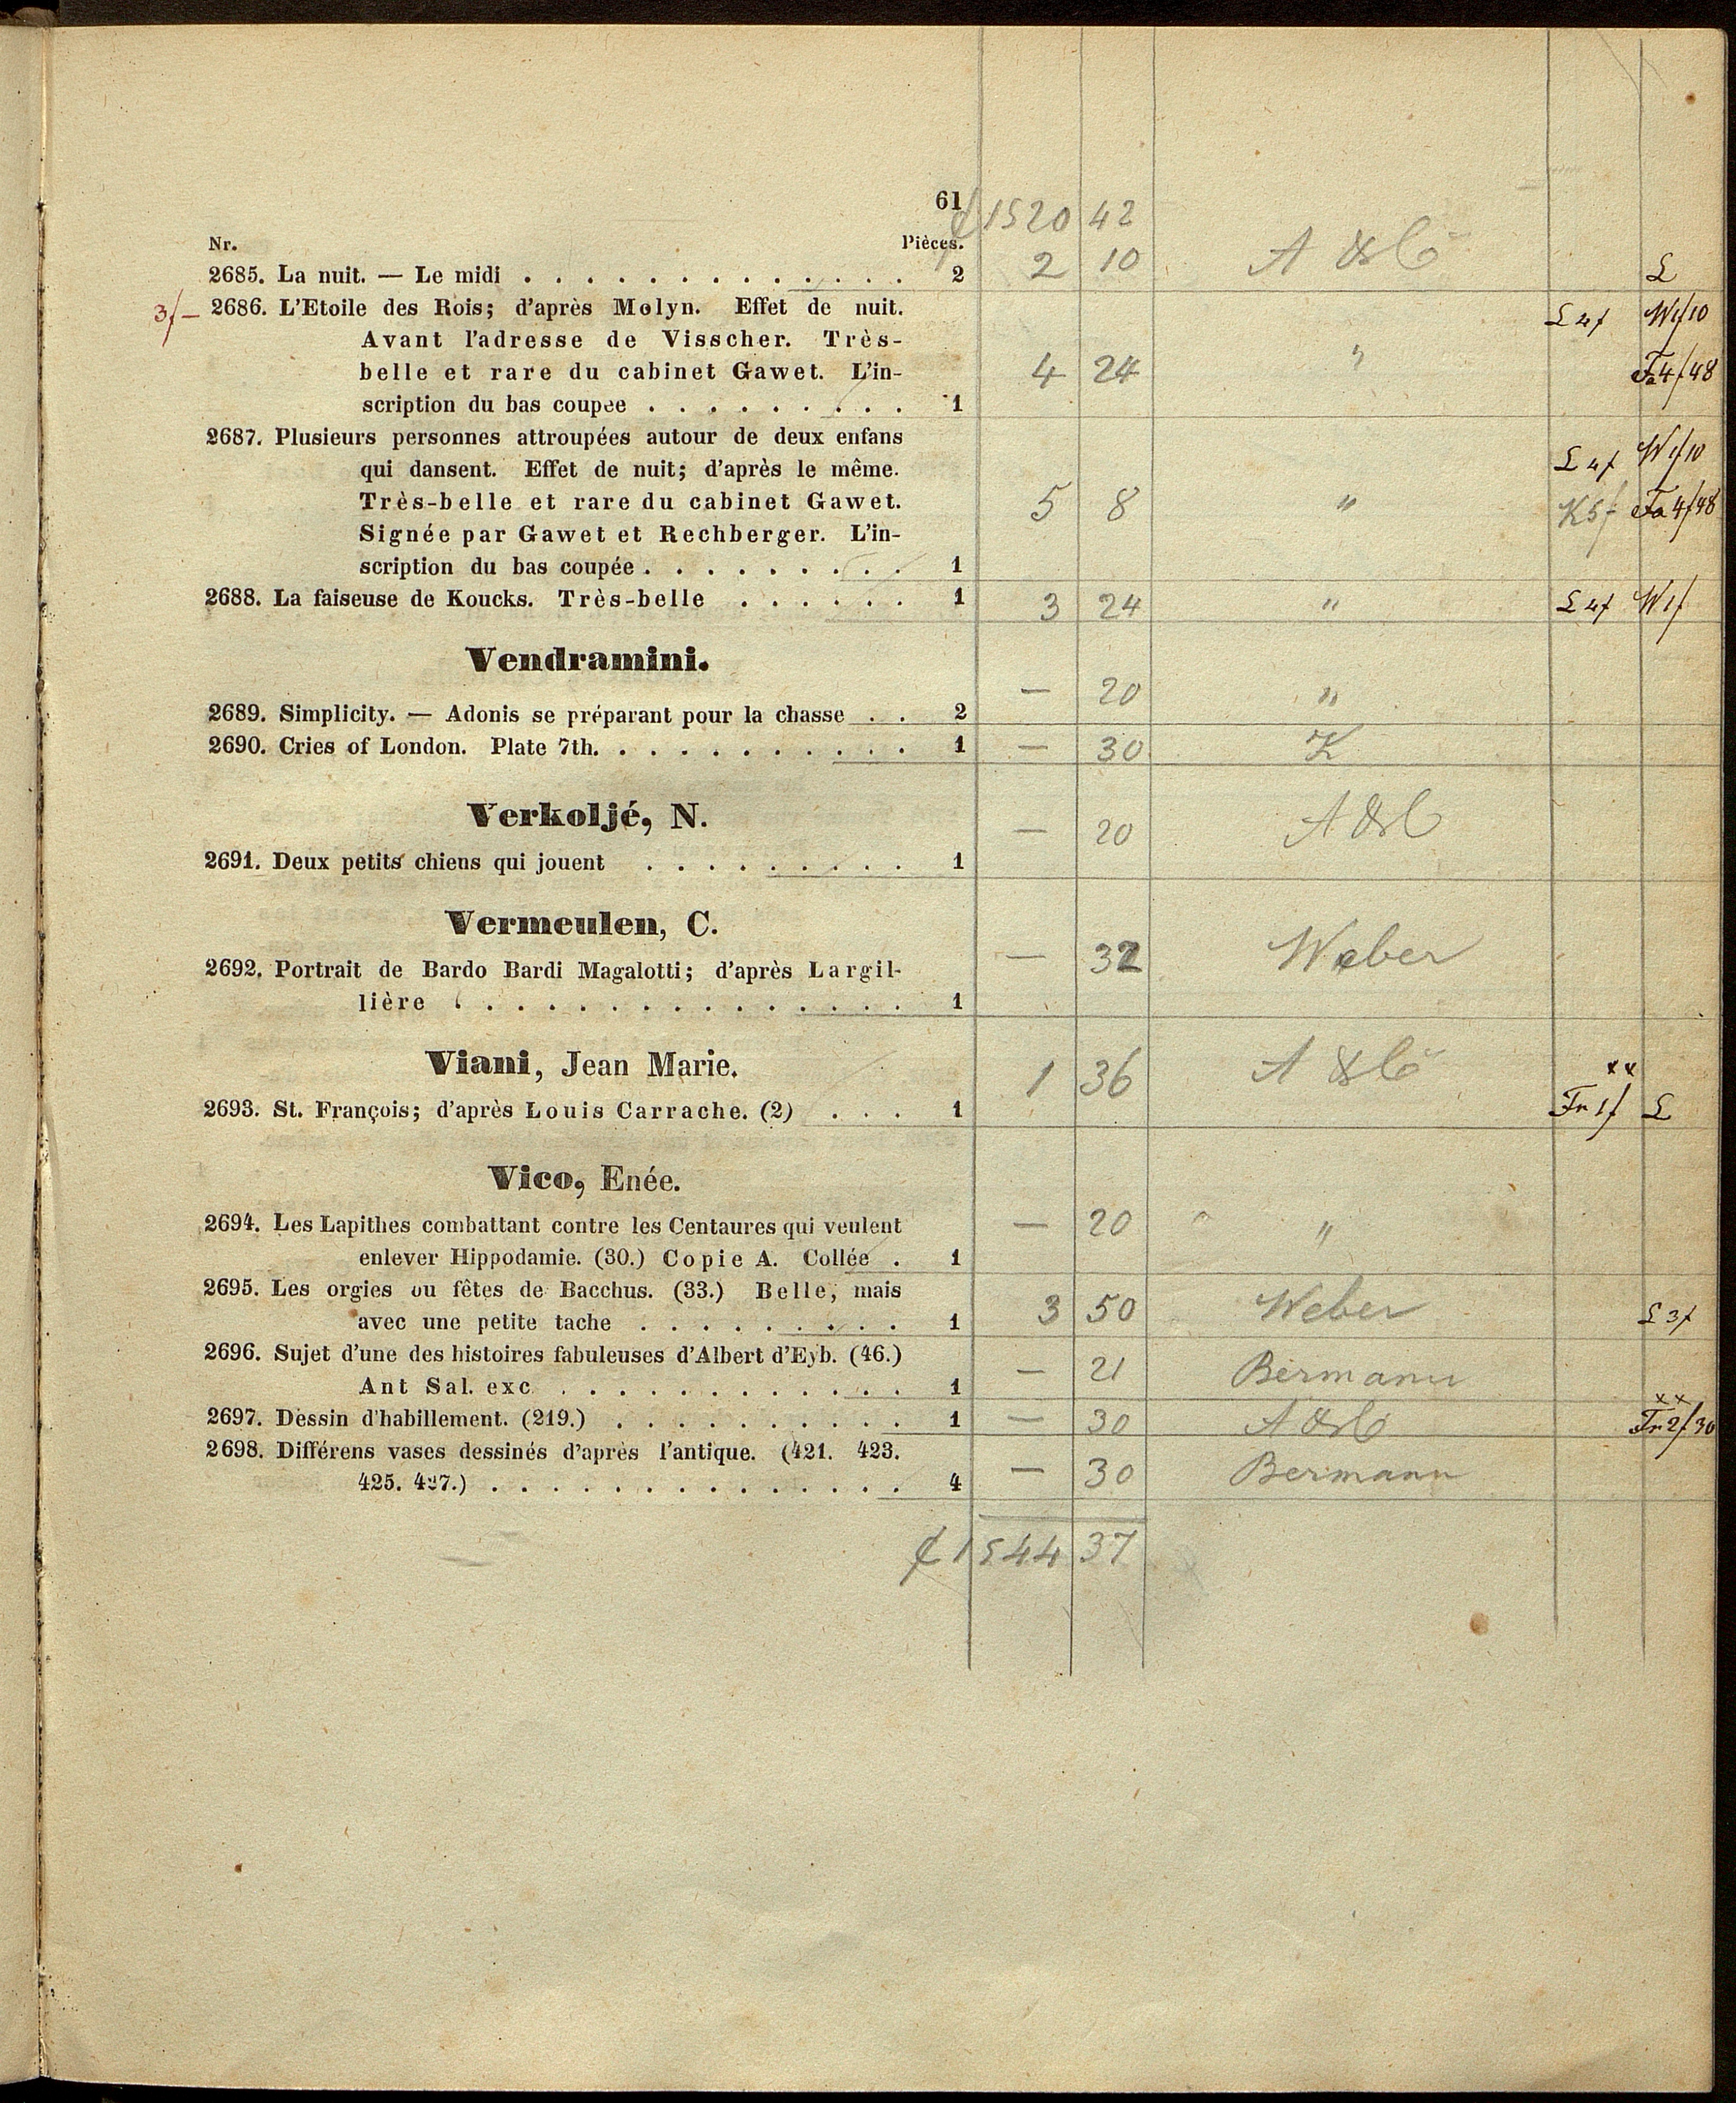 61
₡ 1520 42
Nr. Pièces.
2685. La nuit. — Le midi . . . . . . . . . . . . . 2 2 10 A & Co L
3f– 2686. L'Etoile des Rois; d'après Molyn. Effet de nuit. L 4f W1f10
Avant l'adresse de Visscher. Très-
belle et rare du cabinet Gawet. L'in- 4 24 " Fa4f48
scription du bas coupée . . . . . . . . . 1
2687. Plusieurs personnes attroupées autour de deux enfans
qui dansent. Effet de nuit; d'après le même. L 4f W1f10
Très-belle et rare du cabinet Gawet. 5 8 " K5f Fa4f48
Signée par Gawet et Rechberger. L'in-
scription du bas coupée . . . . . . . . . 1
2688. La faiseuse de Koucks. Très-belle . . . . . . 1 3 24 " L 4f W1f
Vendramini.
2689. Simplicity. — Adonis se préparant pour la chasse . . 2 — 20 "
2690. Cries of London. Plate 7th. . . . . . . . . . . 1 — 30 K
Verkoljé, N.
2691. Deux petits chiens qui jouent . . . . . . . . . 1 — 20 A & C
Vermeulen, C.
2692. Portrait de Bardo Bardi Magalotti; d'après Largil- — 32 Weber
lière . . . . . . . . . . . . . . . 1
Viani, Jean Marie.
1 36 A & Co xx
2693. St. François; d'après Louis Carrache. (2) . . . 1 Fr 1f L
Vico, Enée.
2694. Les Lapithes combattant contre les Centaures qui veulent — 20 "
enlever Hippodamie. (30.) Copie A. Collée . 1
2695. Les orgies ou fêtes de Bacchus. (33.) Belle, mais
avec une petite tache . . . . . . . . . 1 3 50 Weber L 3f
2696. Sujet d'une des histoires fabuleuses d'Albert d'Eyb. (46.)
Ant Sal. exc. . . . . . . . . . . . . 1 — 21 Bermann
2697. Dessin d'habillement. (219.) . . . . . . . . . . 1 — 30 A & Co xx Fr2f30
2698. Différens vases dessinés d'après l'antique. (421. 423.
425. 427.) . . . . . . . . . . . . . . 4 — 30 Bermann
₡ 1544 37